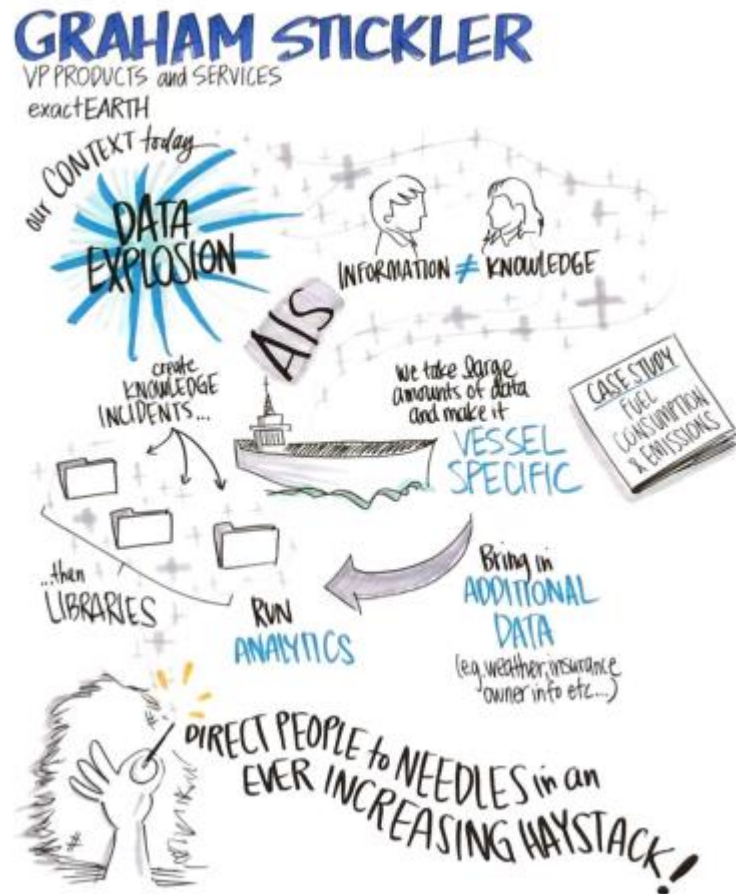 GRAHAM STICKLER
VP PRODUCTS and SERVICES
exactEARTH
our CONTEXT today
DATA
EXPLOSION
INFORMATION ≠ KNOWLEDGE
AIS
create
KNOWLEDGE
INCIDENTS...
We take large
amounts of data
and make it
VESSEL
SPECIFIC
CASE STUDY
FUEL
CONSUMPTION
& EMISSIONS
...then
LIBRARIES
RUN
ANALYTICS
Bring in
ADDITIONAL
DATA
(e.g. weather, insurance
owner info etc...)
DIRECT PEOPLE to NEEDLES in an
EVER INCREASING HAYSTACK!